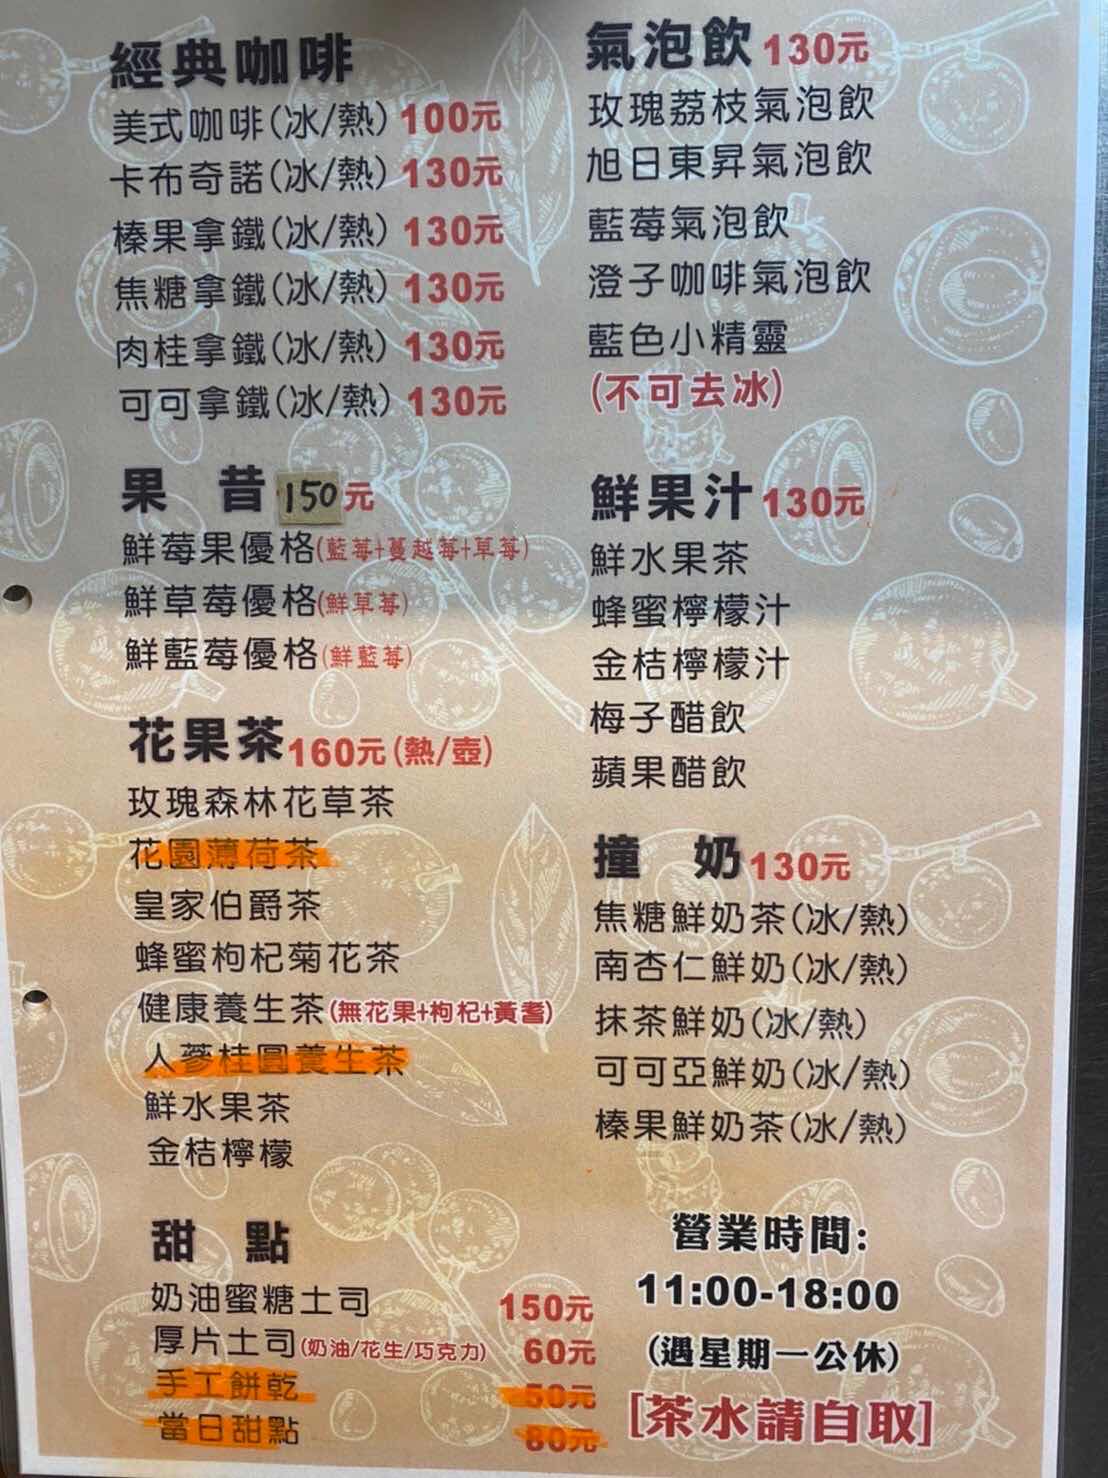 經典咖啡
美式咖啡(冰/熱) 100元
卡布奇諾(冰/熱) 130元
榛果拿鐵(冰/熱) 130元
焦糖拿鐵(冰/熱) 130元
肉桂拿鐵(冰/熱) 130元
可可拿鐵(冰/熱) 130元
果 昔 150元
鮮莓果優格(藍莓+蔓越莓+草莓)
鮮草莓優格(鮮草莓)
鮮藍莓優格(鮮藍莓)
花果茶160元(熱/壺)
玫瑰森林花草茶
花園薄荷茶
皇家伯爵茶
蜂蜜枸杞菊花茶
健康養生茶(無花果+枸杞+黃耆)
人蔘桂圓養生茶
鮮水果茶
金桔檸檬
甜 點
奶油蜜糖土司 150元
厚片土司(奶油/花生/巧克力) 60元
手工餅乾 50元
當日甜點 80元
氣泡飲 130元
玫瑰荔枝氣泡飲
旭日東昇氣泡飲
藍莓氣泡飲
澄子咖啡氣泡飲
藍色小精靈
(不可去冰)
鮮果汁 130元
鮮水果茶
蜂蜜檸檬汁
金桔檸檬汁
梅子醋飲
蘋果醋飲
撞 奶 130元
焦糖鮮奶茶(冰/熱)
南杏仁鮮奶(冰/熱)
抹茶鮮奶(冰/熱)
可可亞鮮奶(冰/熱)
榛果鮮奶茶(冰/熱)
營業時間:
11:00-18:00
(遇星期一公休)
[茶水請自取]